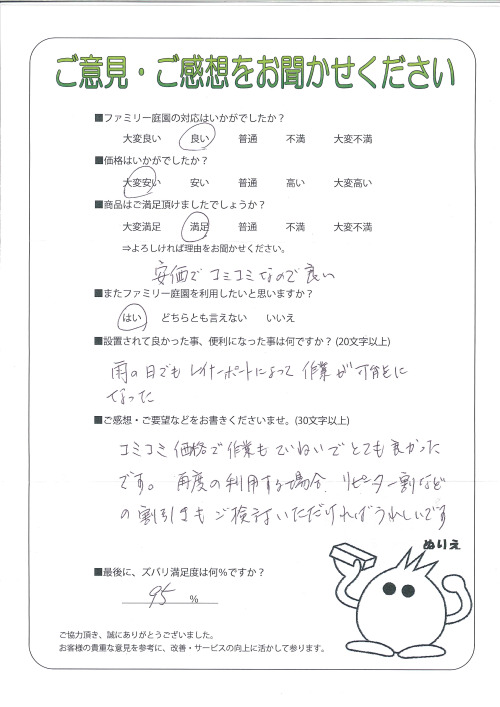 ご意見・ご感想をお聞かせください
■ファミリー庭園の対応はいかがでしたか？
大変良い 良い 普通 不満 大変不満
■価格はいかがでしたか？
大変安い 安い 普通 高い 大変高い
■商品はご満足頂けましたでしょうか？
大変満足 満足 普通 不満 大変不満
⇒よろしければ理由をお聞かせください。
安価で コミコミなので良い
■またファミリー庭園を利用したいと思いますか？
はい どちらとも言えない いいえ
■設置されて良かった事、便利になった事は何ですか？(20文字以上)
雨の日でも レイナーポートによって 作業が可能に
なった
■ご感想・ご要望などをお書きくださいませ。(30文字以上)
コミコミ価格で作業もていねいでとても良かった
です。再度の利用する場合、リピーター割など
の割引きもご検討いただければうれしいです
ぬりえ
■最後に、ズバリ満足度は何％ですか？
95 ％
ご協力頂き、誠にありがとうございました。
お客様の貴重な意見を参考に、改善・サービスの向上に活かして参ります。